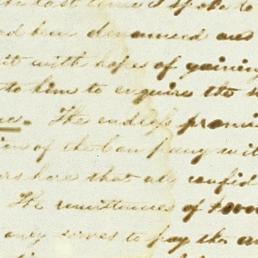 the last time I spoke to
him denounced and
it with hopes of gaining
to him to enquire the
The endless promi
tion of the Company wit
ers here that all confid
The remittances of
only serves to pay the